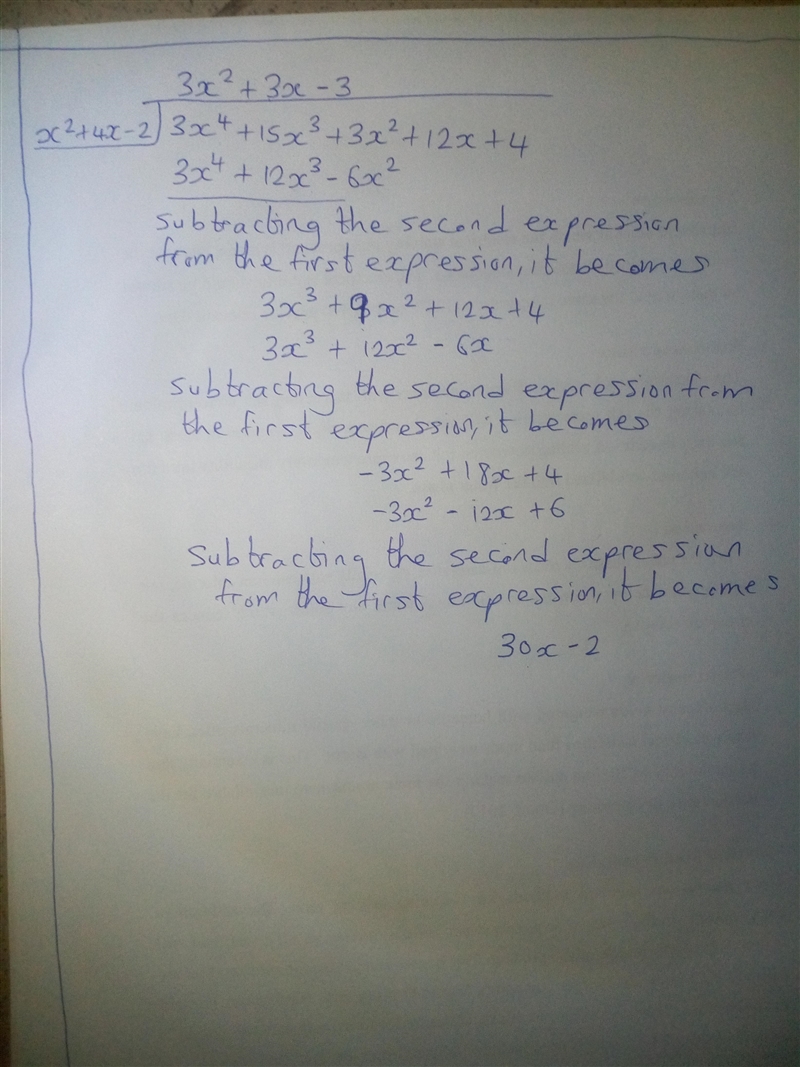 3x² + 3x - 3
x²+4x-2) 3x⁴ + 15x³ + 3x² + 12x + 4
3x⁴ + 12x³ - 6x²
Subtracting the second expression
from the first expression, it becomes
3x³ + 9x² + 12x + 4
3x³ + 12x² - 6x
Subtracting the second expression from
the first expression, it becomes
-3x² + 18x + 4
-3x² - 12x + 6
Subtracting the second expression
from the first expression, it becomes
30x - 2